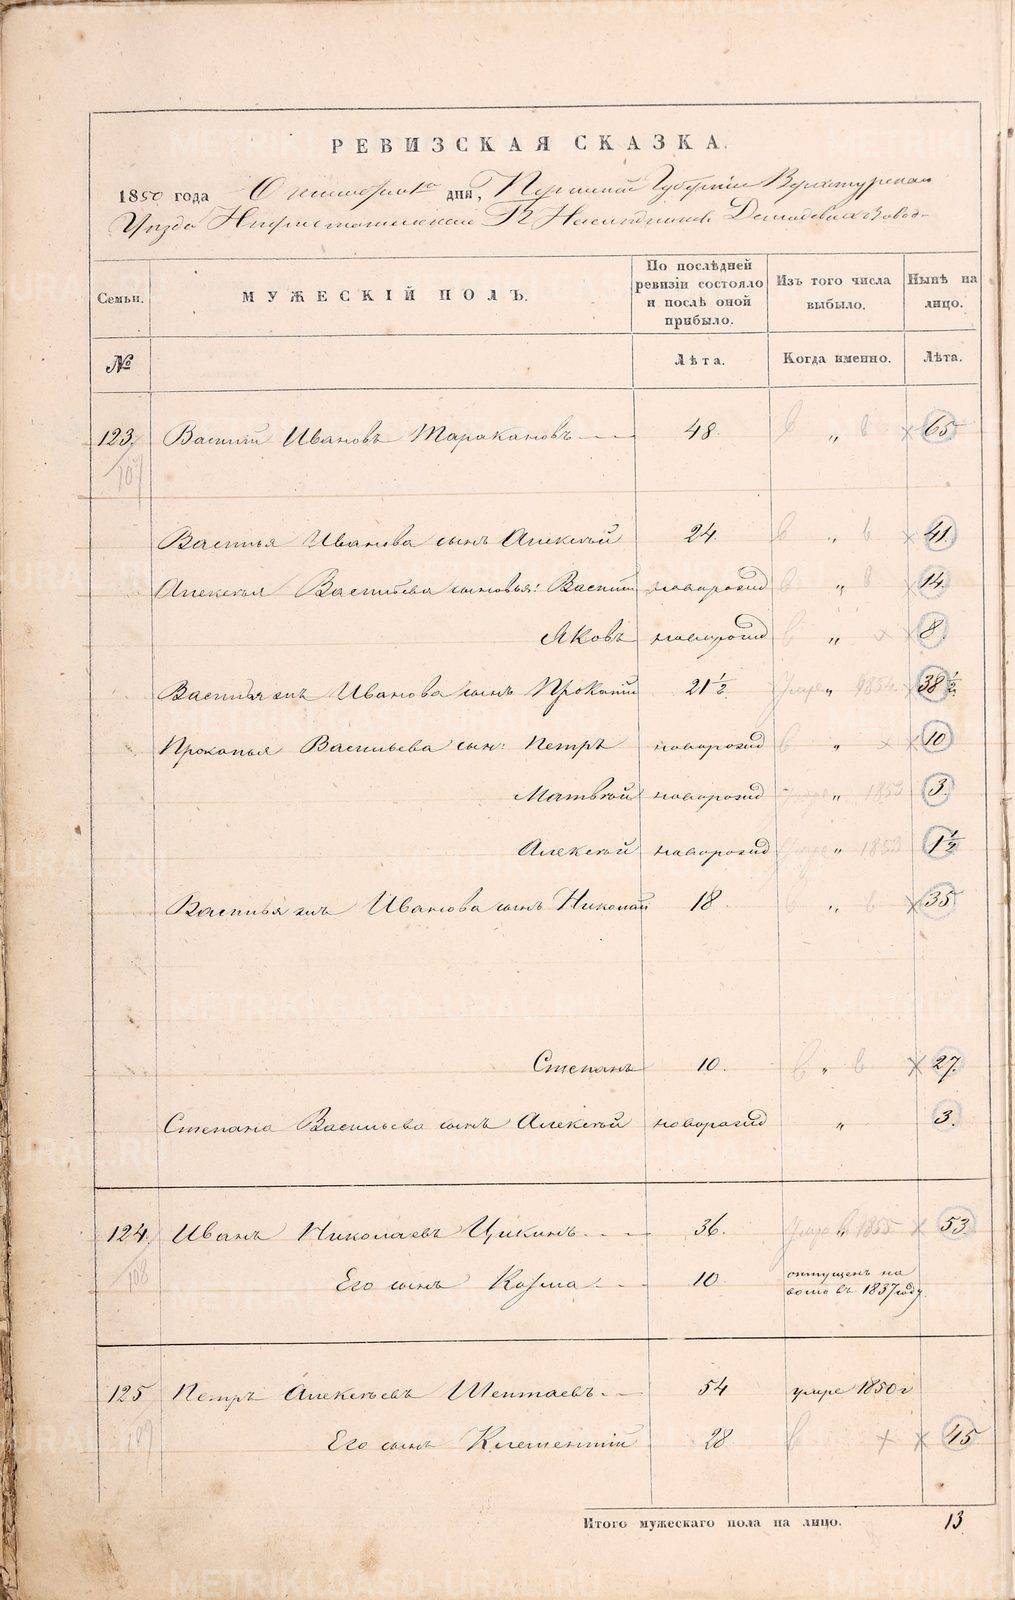 РЕВИЗСКАЯ СКАЗКА.
1850 года Октября дня, Пермской Губернии Верхотурскаго
Уезда Нижнетагильскаго Г. Наследников Демидовых завод-
Семьи. МУЖЕСКІЙ ПОЛЪ. По послѣдней ревизіи состояло и послѣ оной прибыло. Изъ того числа выбыло. Нынѣ на лицо.
№ Лѣта. Когда именно. Лѣта.
123. Василій Ивановъ Таракановъ 48. „ 65
107
Василья Иванова сынъ Алексѣй 24. „ 41
Алексѣя Васильева сыновья: Василій новорожд „ 14
Яковъ новорожд „ 8.
Василья же Иванова сынъ Прокопій 21½. Умре „ 1854 38½
Прокопья Васильева сын: Петръ новорожд „ 10
Матвѣй новорожд умре „ 1853 3.
Алексѣй новорожд умре „ 1853 1½
Василья же Иванова сынъ Николай 18 „ 35
Степанъ 10. „ 27.
Степана Васильева сынъ Алексѣй новорожд „ 3.
124. Иванъ Николаевъ Цикинъ 36. Умре в 1855 53
108 Его сынъ Козма 10 отпущенъ на
волю въ 1837 году.
125 Петръ Алексѣевъ Шептаевъ 54 умре 1850 г
109 Его сынъ Клементій 28 45
Итого мужескаго пола на лицо. 13
METRIKI.GASO-URAL.RU